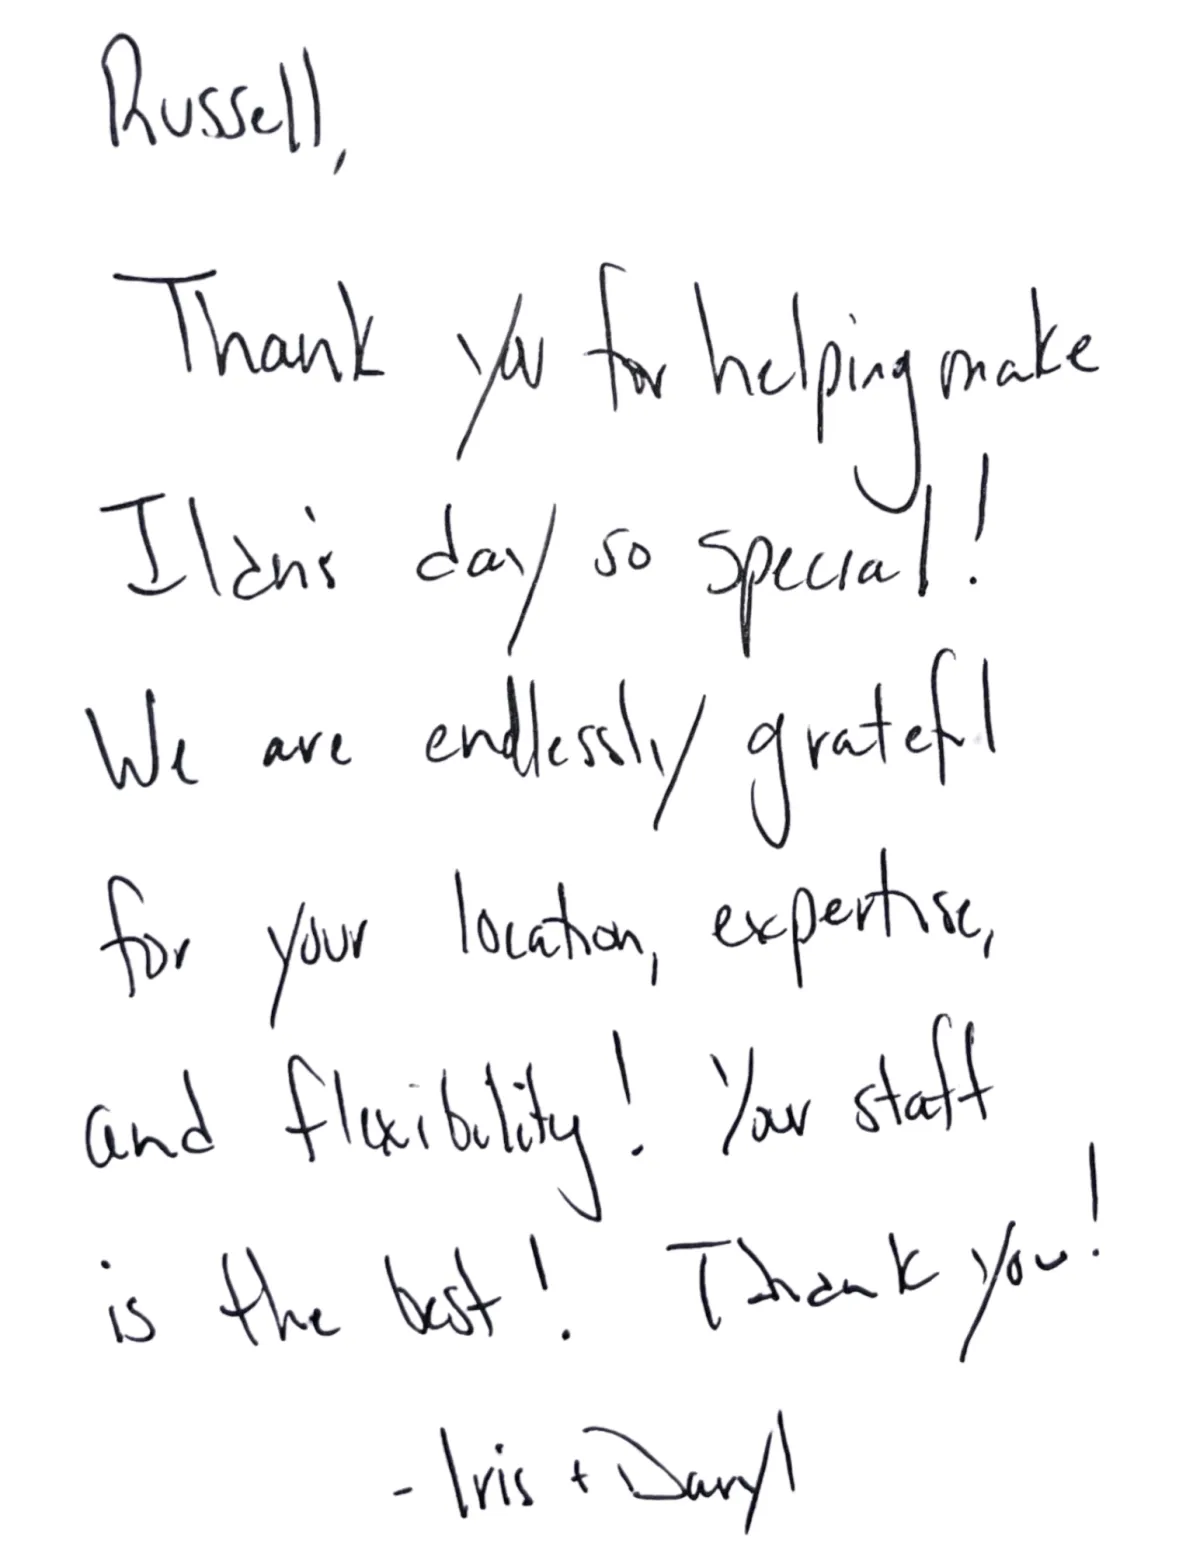 Russell,
Thank you for helping make
Ilan's day so special!
We are endlessly grateful
for your location, expertise,
and flexibility! Your staff
is the best! Thank you!
- Iris + Daryl